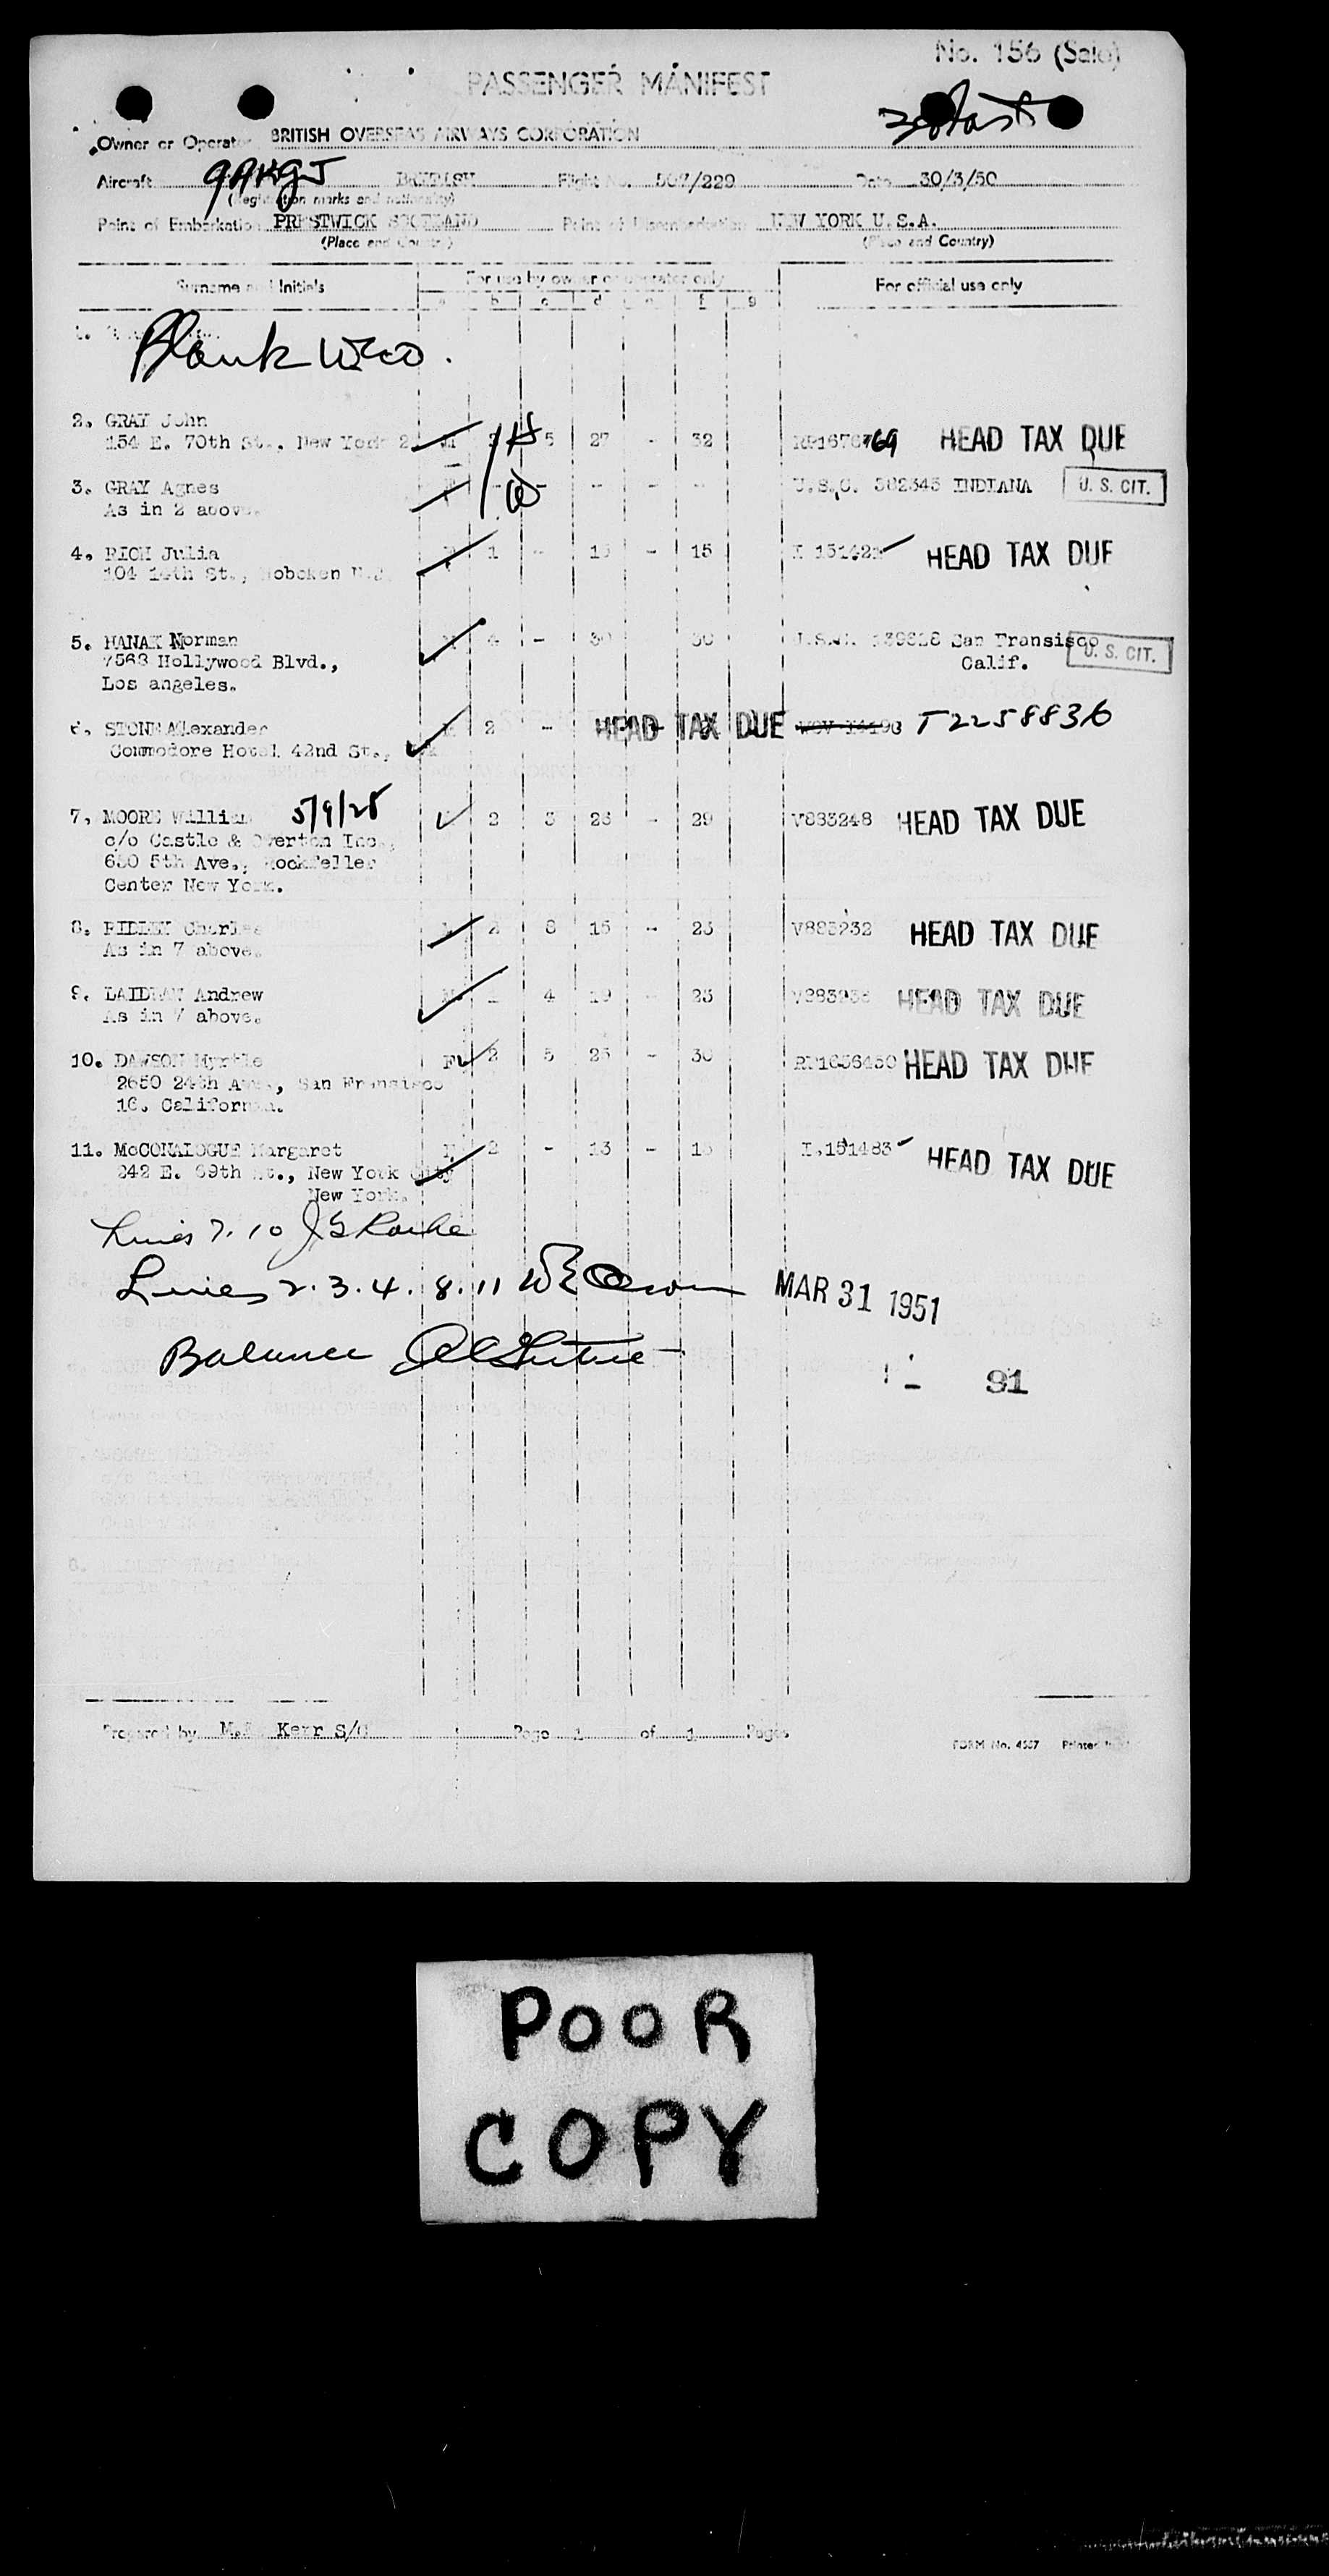 No. 156 (Sale)
PASSENGER MANIFEST
Owner or Operator BRITISH OVERSEAS AIRWAYS CORPORATION
Aircraft GAKGJ BRITISH Flight No. 507/229 Date 30/3/50
(Registration marks and nationality)
Point of Embarkation PRESTWICK SCOTLAND Point of Disembarkation NEW YORK U.S.A.
(Place and Country) (Place and Country)
Surname and Initials For use by owner or operator only For official use only
a b c d e f g
1.
Blank
2. GRAY John
154 E. 70th St., New York 2 M 5 27 - 32 69 HEAD TAX DUE
3. GRAY Agnes - - - - U.S.C. 302345 INDIANA U. S. CIT.
As in 2 above.
4. RICH Julia 1 - 15 - 15 HEAD TAX DUE
104 14th St., Hoboken N.J.
5. HANAK Norman 4 - 30 30 San Fransisco U. S. CIT.
7563 Hollywood Blvd., Calif.
Los angeles.
6. STONE Alexander 2 - HEAD TAX DUE T2258836
Commodore Hotel 42nd St.,
7, MOORE William 5/9/25 2 3 26 - 29 V883248 HEAD TAX DUE
c/o Castle & Overton Inc.,
630 5th Ave., Rockfeller
Center New York.
8. RIDLEY Charles 2 8 15 - 23 HEAD TAX DUE
As in 7 above.
9. LAIDLAW Andrew 4 19 - 23 HEAD TAX DUE
As in 7 above.
10. DAWSON Myrtle F 2 5 25 - 30 HEAD TAX DUE
2650 24th Ave., San Fransisco
16. California.
11. McCONALOGUE Margaret F 2 - 13 - I.151483 HEAD TAX DUE
242 E. 69th St., New York City
New York.
Lines 7. 10
Lines 2. 3. 4. 8. 11 MAR 31 1951
Balance
91
Prepared by Kerr Page 1 of 1 Pages
FORM No. 4567 Printed
POOR
COPY